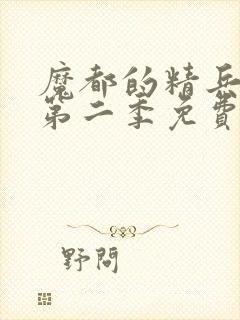 魔都的精兵
第二季免費
野問